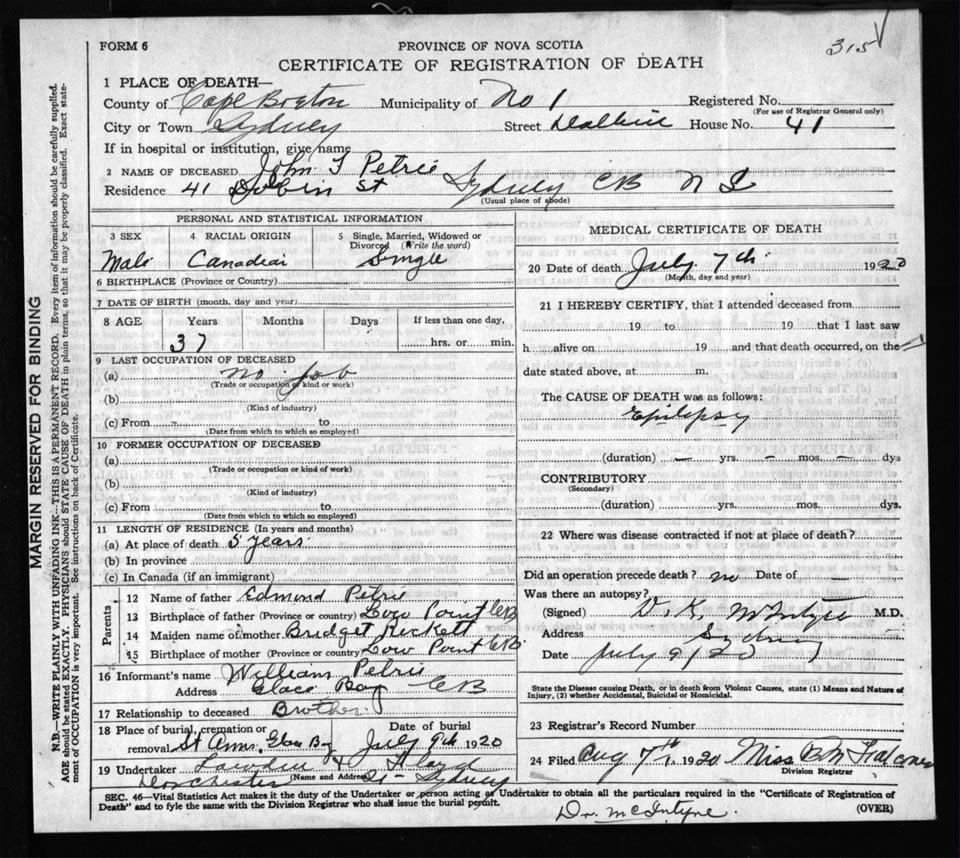 FORM 6
PROVINCE OF NOVA SCOTIA
315
CERTIFICATE OF REGISTRATION OF DEATH
1 PLACE OF DEATH—
County of Cape Breton Municipality of No 1 Registered No.
(For use of Registrar General only)
City or Town Sydney Street House No. 41
If in hospital or institution, give name
2 NAME OF DECEASED John J Petrie
Residence 41 Dobin St Sydney CB N S
(Usual place of abode)
PERSONAL AND STATISTICAL INFORMATION
3 SEX 4 RACIAL ORIGIN 5 Single, Married, Widowed or Divorced (Write the word)
Male Canadian Single
6 BIRTHPLACE (Province or Country)
7 DATE OF BIRTH (month, day and year)
8 AGE Years Months Days If less than one day,
37 hrs. or min.
9 LAST OCCUPATION OF DECEASED
(a) no job
(Trade or occupation or kind or work)
(b)
(Kind of industry)
(c) From to
(Date from which to which so employed)
10 FORMER OCCUPATION OF DECEASED
(a)
(Trade or occupation or kind of work)
(b)
(Kind of industry)
(c) From to
(Date from which to which so employed)
11 LENGTH OF RESIDENCE (In years and months)
(a) At place of death 5 years
(b) In province
(c) In Canada (if an immigrant)
Parents
12 Name of father Edmond Petrie
13 Birthplace of father (Province or country) Low Point CB
14 Maiden name of mother Bridget
15 Birthplace of mother (Province or country) Low Point CB
16 Informant's name William Petrie
Address Glace Bay CB
17 Relationship to deceased Brother
18 Place of burial, cremation or removal St Anns Glace Bay Date of burial July 9th 1920
19 Undertaker Lowden & Lloyd
(Name and Address) Dorchester St - Sydney
MEDICAL CERTIFICATE OF DEATH
20 Date of death July 7th 1920
(Month, day and year)
21 I HEREBY CERTIFY, that I attended deceased from
19 to 19 that I last saw
h alive on 19 and that death occurred, on the
date stated above, at m.
The CAUSE OF DEATH was as follows:
Epilepsy
(duration) — yrs. — mos. — dys
CONTRIBUTORY
(Secondary)
(duration) yrs. mos. dys.
22 Where was disease contracted if not at place of death?
Did an operation precede death? no Date of —
Was there an autopsy?
(Signed) D. K. McIntyre M.D.
Address Sydney
Date July 9/20
State the Disease causing Death, or in death from Violent Causes, state (1) Means and Nature of
Injury, (2) whether Accidental, Suicidal or Homicidal.
23 Registrar's Record Number
24 Filed Aug 7th 1920 Miss B M Falconer
Division Registrar
SEC. 46—Vital Statistics Act makes it the duty of the Undertaker or person acting as Undertaker to obtain all the particulars required in the "Certificate of Registration of
Death" and to fyle the same with the Division Registrar who shall issue the burial permit.
(OVER)
Dr. McIntyre.
MARGIN RESERVED FOR BINDING
N.B.—WRITE PLAINLY WITH UNFADING INK—THIS IS A PERMANENT RECORD. Every item of information should be carefully supplied.
AGE should be stated EXACTLY. PHYSICIANS should STATE CAUSE OF DEATH in plain terms, so that it may be properly classified. Exact state-
ment of OCCUPATION is very important. See instructions on back of Certificate.